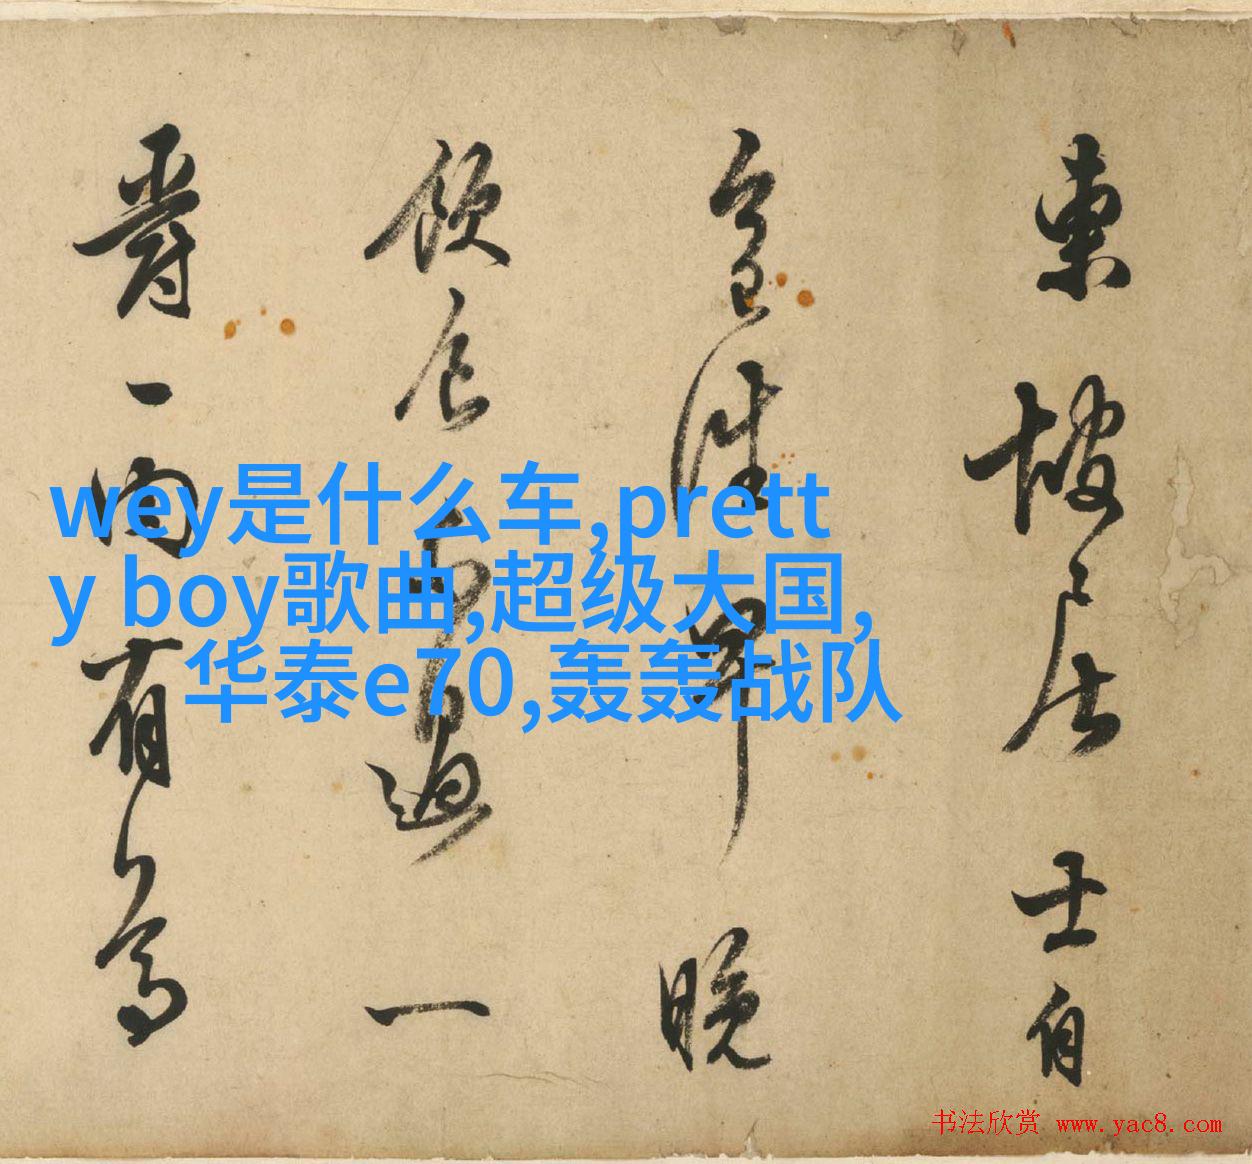 東坡居士自
今日往早晚
飲食不過一
爵一肉有尊
wey是什么车,prett
y boy歌曲,超级大国,
华泰e70,轰轰战队
书法欣赏 www.yac8.com